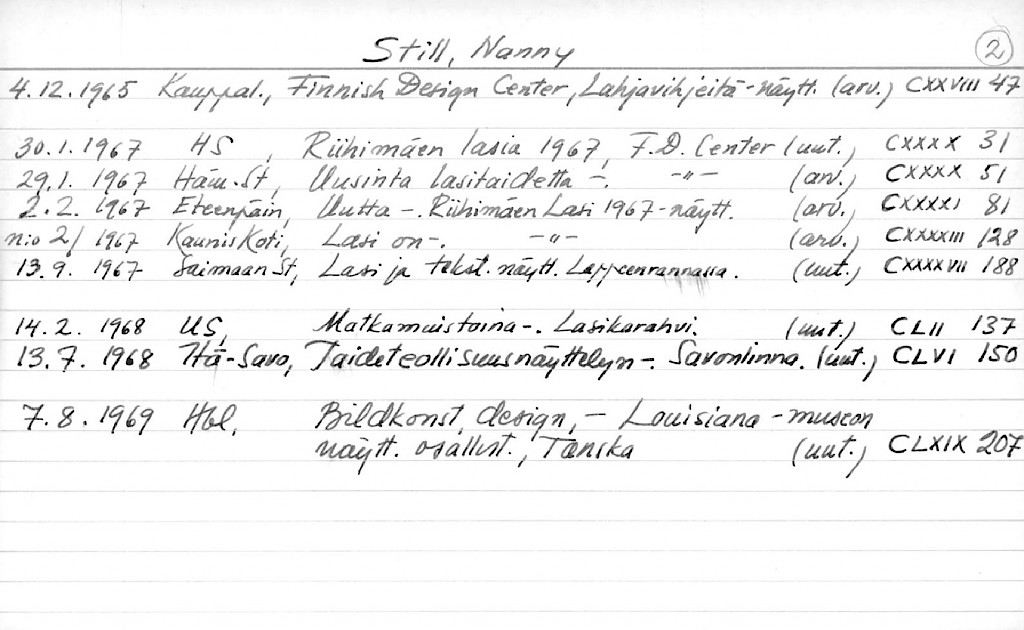 Still, Nanny 2
4.12.1965 Kauppal., Finnish Design Center, Lahjavihjeitä-näytt. (arv.) CXXVIII 47
30.1.1967 HS, Riihimäen lasia 1967, F.D. Center (uut.) CXXXX 31
29.1.1967 Häm.St, Uusinta lasitaidetta -. -"- (arv.) CXXXX 51
2.2.1967 Eteenpäin, Uutta -. Riihimäen Lasi 1967-näytt. (arv.) CXXXXI 81
n:o 2/1967 Kaunis Koti, Lasi on -. -"- (arv.) CXXXXIII 128
13.9.1967 Saimaan St, Lasi ja tekst. näytt. Lappeenrannassa. (uut.) CXXXXVII 188
14.2.1968 US, Matkamuistoina -. Lasikarahvi. (uut.) CLII 137
13.7.1968 Itä-Savo, Taideteollisuusnäyttelyn -. Savonlinna. (uut.) CLVI 150
7.8.1969 Hbl, Bildkonst, design, - Louisiana-museon
näytt. osallist., Tanska (uut.) CLXIX 207